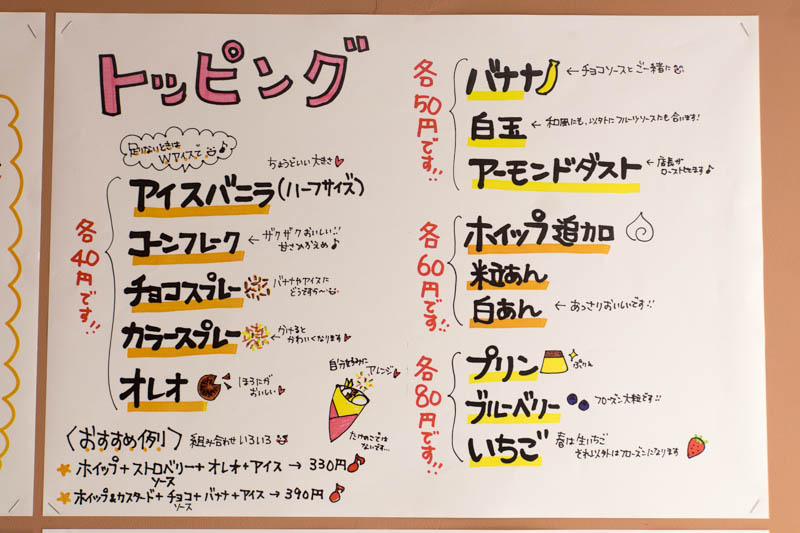 トッピング
足りないときは
Wアイスで♪
ちょうどいい大きさ
各40円です!!
アイスバニラ(ハーフサイズ)
コーンフレーク ← ザクザクおいしい!!
甘さひかえめ♪
チョコスプレー バナナやアイスに
どうですか〜
カラースプレー ← かけると
かわいくなります
オレオ ほろにが
おいしい
自分好みに
アレンジ
たけのこでは
ないです…
〈おすすめ例〉 組み合わせいろいろ
★ ホイップ+ストロベリー+オレオ+アイス → 330円
ソース
★ ホイップ&カスタード+チョコ+バナナ+アイス → 390円
ソース
各50円です!!
バナナ ← チョコソースとご一緒に
白玉 ← 和風にも、以外にフルーツソースにも合います!
アーモンドダスト ← 店長が
ローストしてます♪
各60円です!!
ホイップ追加
粒あん
白あん ← あっさりおいしいです!!
各80円です!!
プリン ぷりん
ブルーベリー フローズン大粒です!!
いちご 春は生いちご
それ以外はフローズンになります